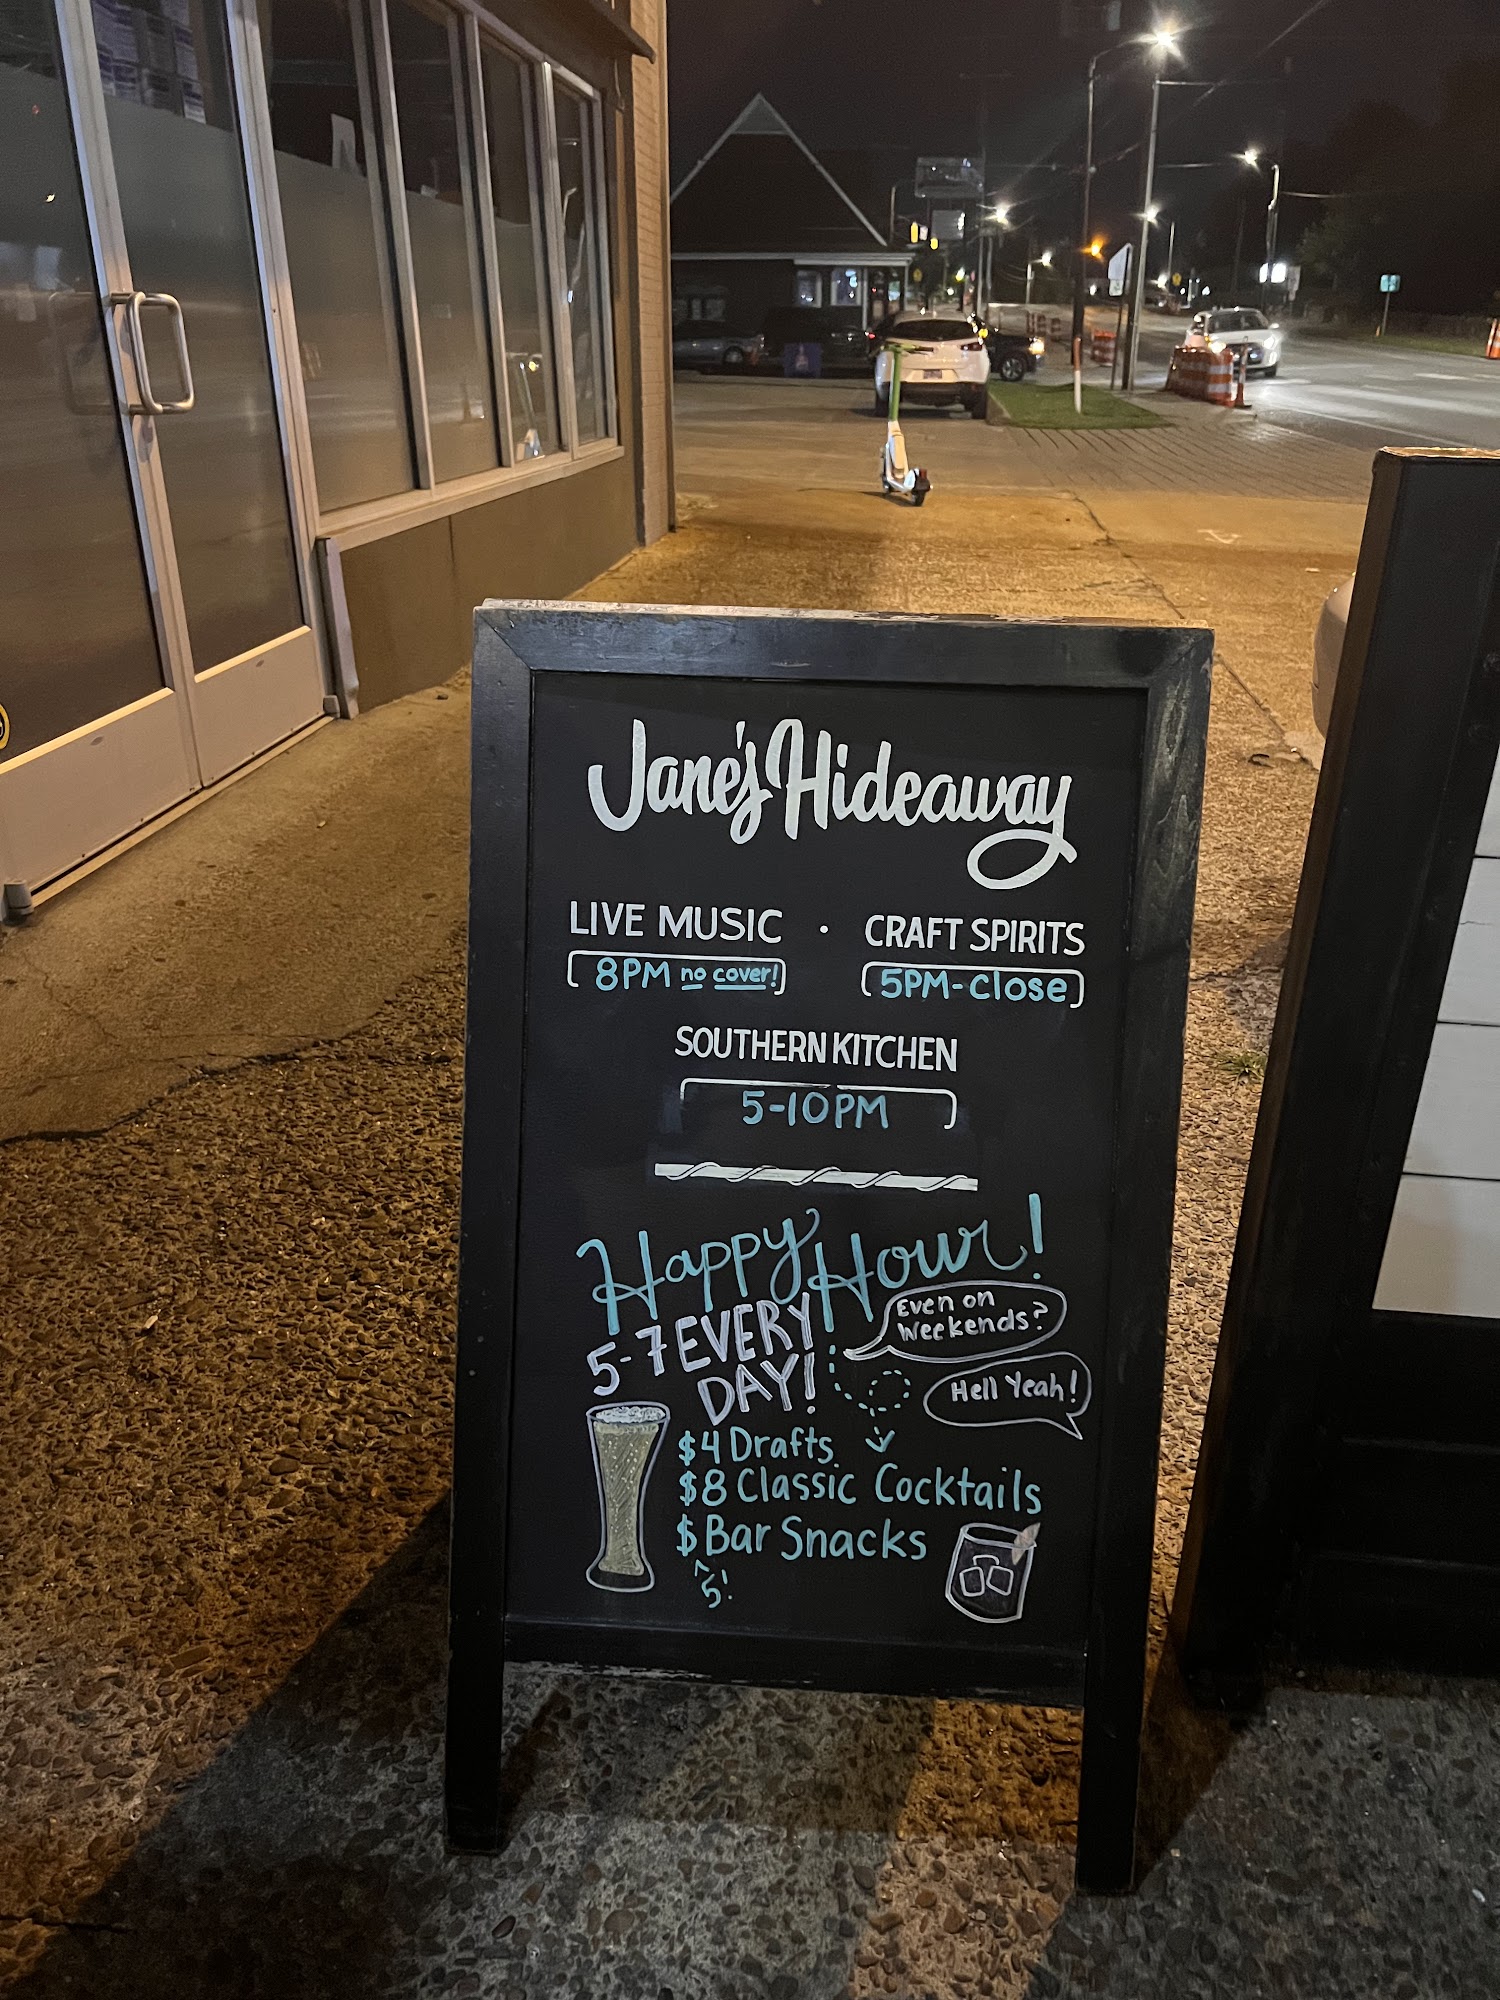 Jane's Hideaway
LIVE MUSIC · CRAFT SPIRITS
8PM no cover! 5PM-Close
SOUTHERN KITCHEN
5-10PM
Happy Hour!
5-7 EVERY
DAY!
Even on
Weekends?
Hell Yeah!
$4 Drafts
$8 Classic Cocktails
$ Bar Snacks
^5!